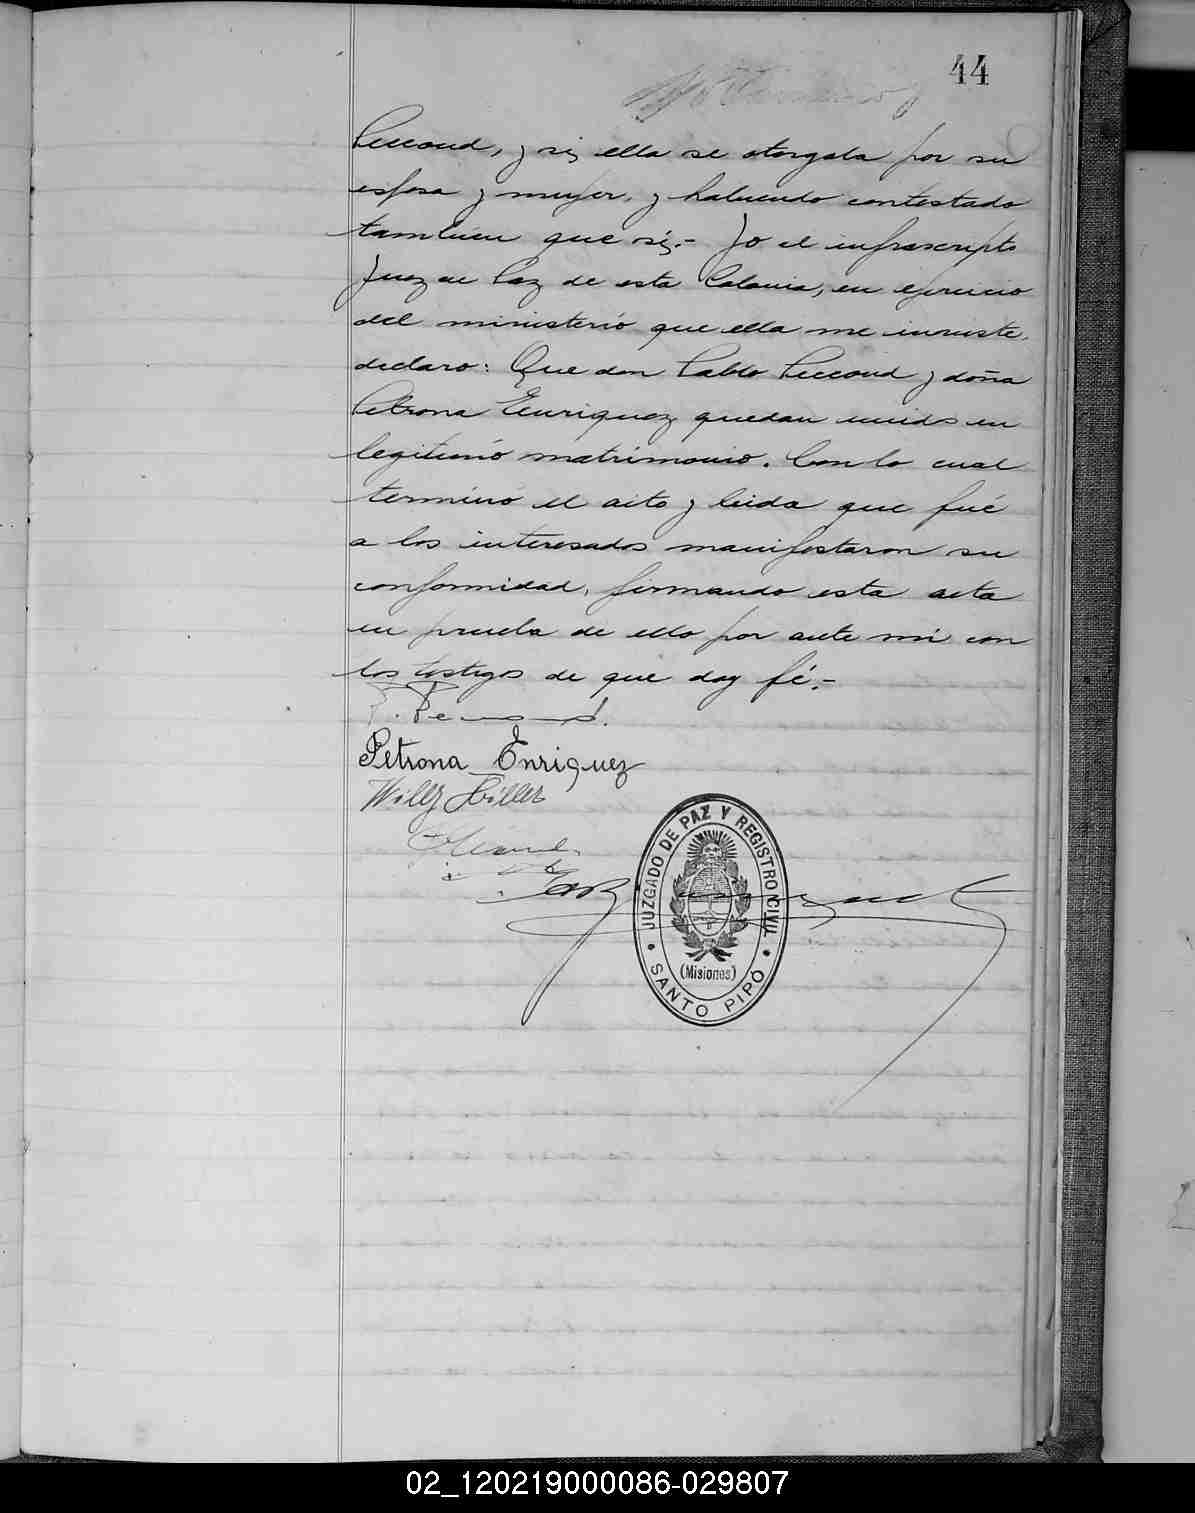 44
Peccoud, y si ella se otorgaba por su
esposa y mujer, y habiendo contestado
tambien que si;- Yo el infrascripto
Juez de Paz de esta Colonia, en ejercicio
del ministerio que ella me inviste,
declaro: Que don Pablo Peccoud y doña
Petrona Enriquez quedan unidos en
legitimó matrimonio. Con lo cual
terminó el acto y leida que fué
a los interesados manifestaron su
conformidad, firmando esta acta
en prueba de ello por ante mi con
los testigos de que doy fé.-
Petrona Enriquez
Willy Hiller
JUZGADO DE PAZ Y REGISTRO CIVIL
(Misiones)
SANTO PIPÓ
02_120219000086-029807